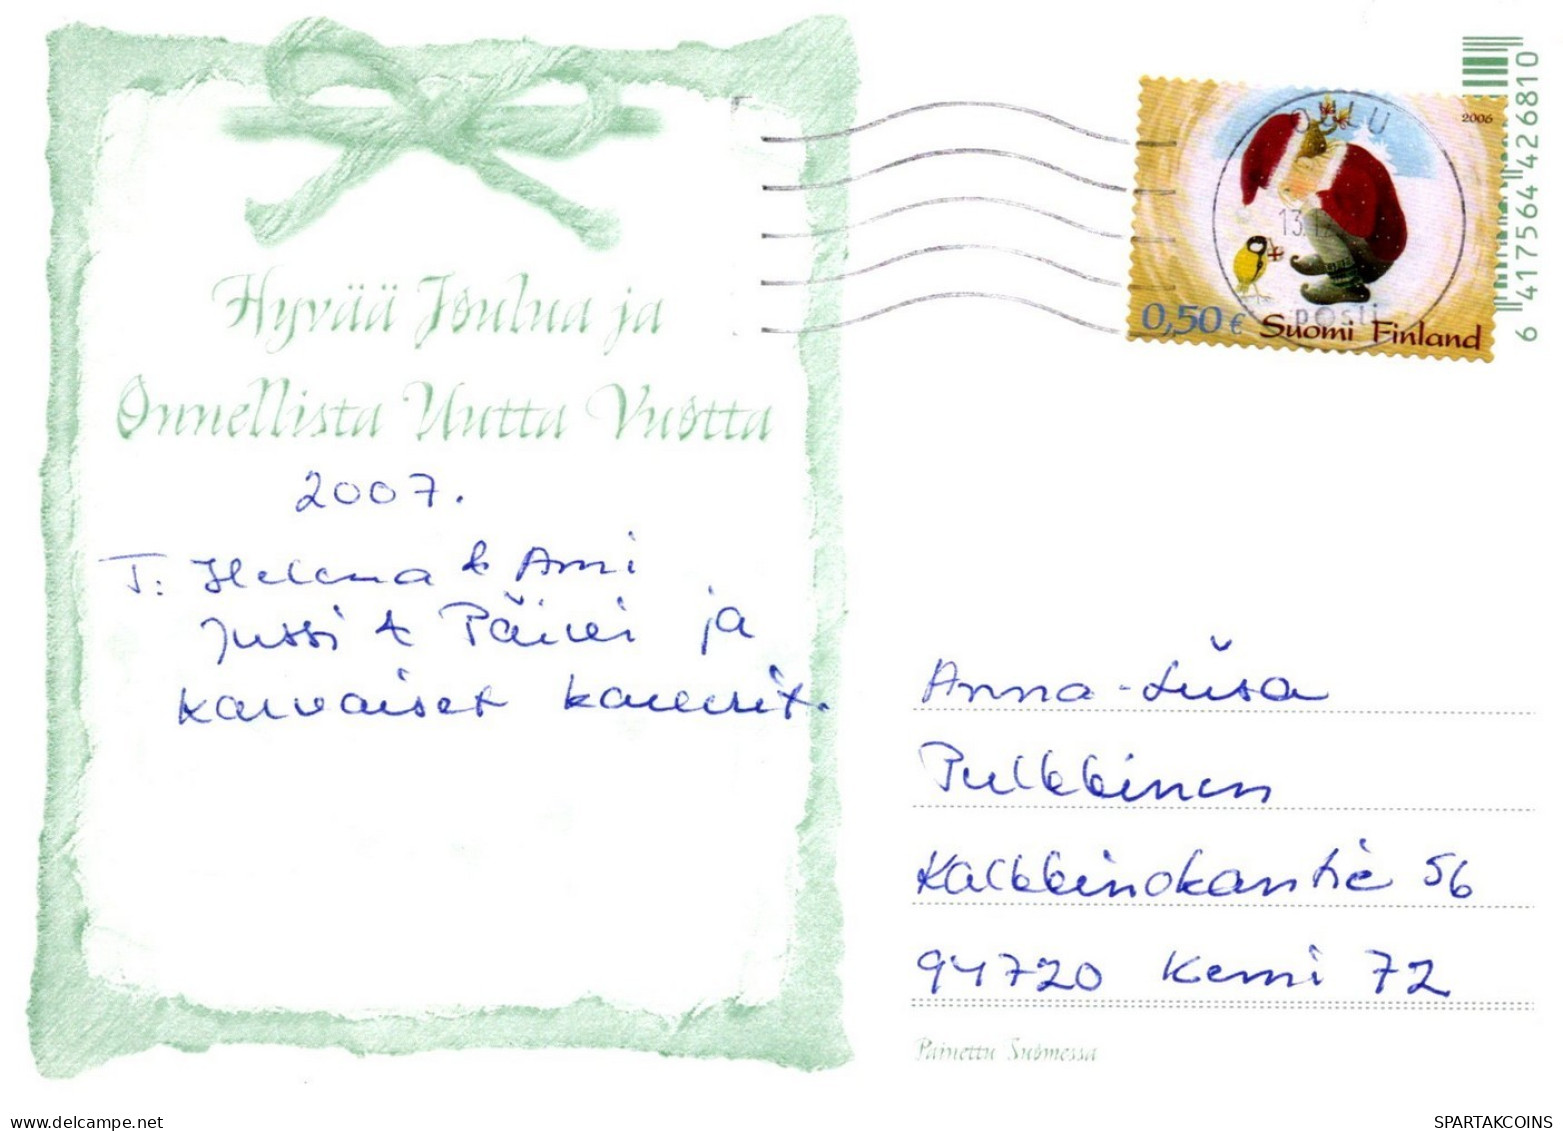 Hyvää Joulua ja
Onnellista Uutta Vuotta
2007.
T: Helena & Ami
Jussi & Päivi ja
karvaiset kaverit.
OULU
13.12
posti
2006
0,50 € Suomi Finland
6 417564 426810
Anna-Liisa
Pulkkinen
Kalkkinokantie 56
94720 Kemi 72
Painettu Suomessa
delcampe.net
SPARTAKCOINS